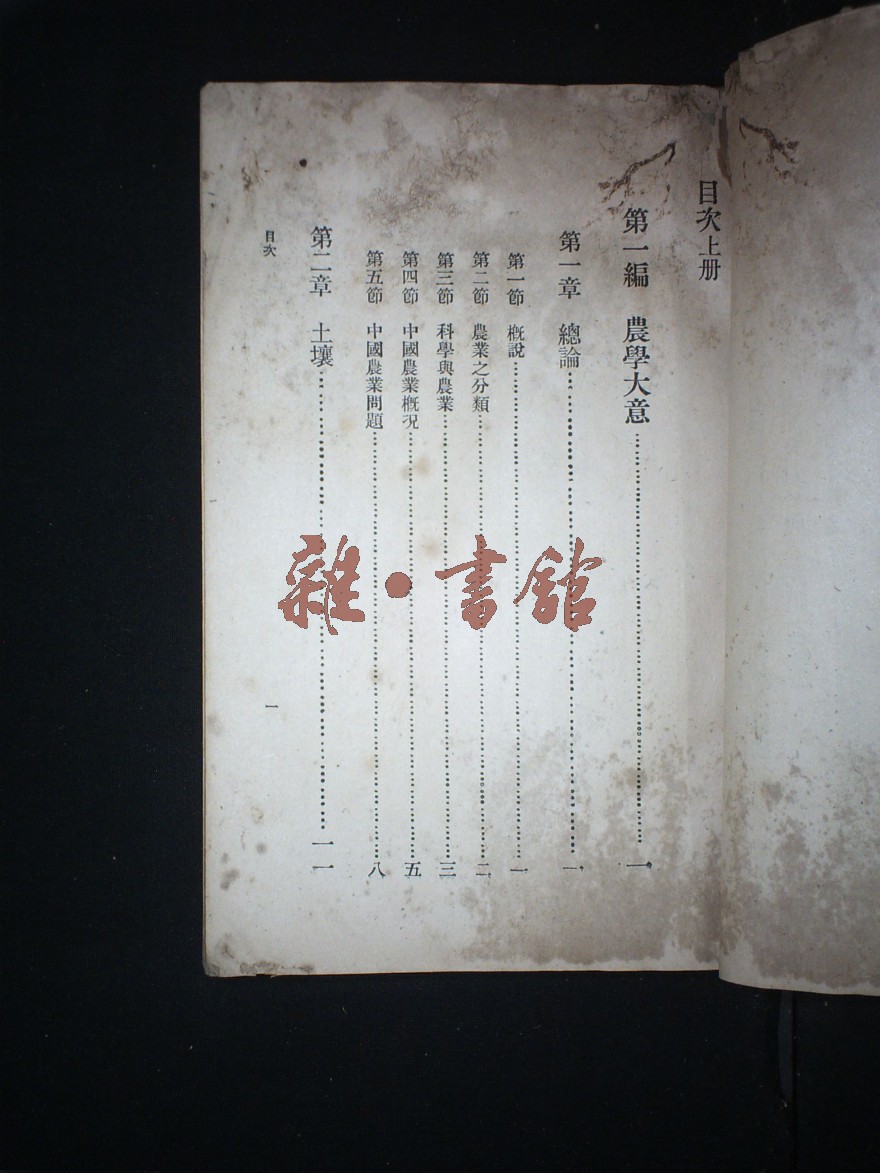 目次上册
第一編 農學大意……一
第一章 總論……一
第一節 概說……一
第二節 農業之分類……二
第三節 科學與農業……三
第四節 中國農業概況……五
第五節 中國農業問題……八
第二章 土壤……一一
目次
一
雜·書館